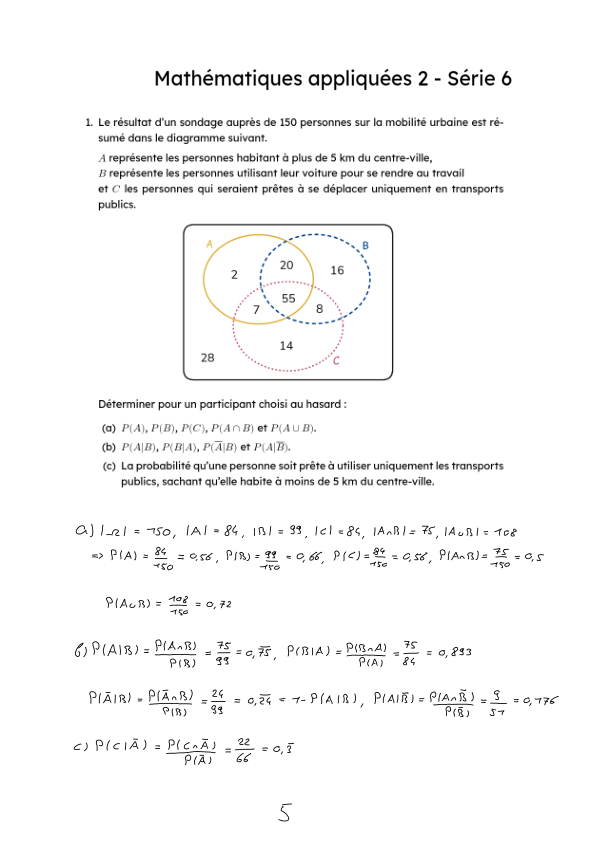 Mathématiques appliquées 2 - Série 6
1. Le résultat d'un sondage auprès de 150 personnes sur la mobilité urbaine est ré-
sumé dans le diagramme suivant.
A représente les personnes habitant à plus de 5 km du centre-ville,
B représente les personnes utilisant leur voiture pour se rendre au travail
et C les personnes qui seraient prêtes à se déplacer uniquement en transports
publics.
A
B
20
16
2
55
7
8
14
28
C
Déterminer pour un participant choisi au hasard :
(a) P(A), P(B), P(C), P(A ∩ B) et P(A ∪ B).
(b) P(A|B), P(B|A), P(A̅|B) et P(A|B̅).
(c) La probabilité qu'une personne soit prête à utiliser uniquement les transports
publics, sachant qu'elle habite à moins de 5 km du centre-ville.
a) |Ω| = 150, |A| = 84, |B| = 99, |C| = 84, |A∩B| = 75, |A∪B| = 108
=> P(A) = 84/150 = 0,56, P(B) = 99/150 = 0,66, P(C) = 84/150 = 0,56, P(A∩B) = 75/150 = 0,5
P(A∪B) = 108/150 = 0,72
b) P(A|B) = P(A∩B)/P(B) = 75/99 = 0,7̅5̅, P(B|A) = P(B∩A)/P(A) = 75/84 = 0,893
P(A̅|B) = P(A̅∩B)/P(B) = 24/99 = 0,2̅4̅ = 1-P(A|B), P(A|B̅) = P(A∩B̅)/P(B̅) = 9/51 = 0,176
c) P(C|A̅) = P(C∩A̅)/P(A̅) = 22/66 = 0,3̅
5